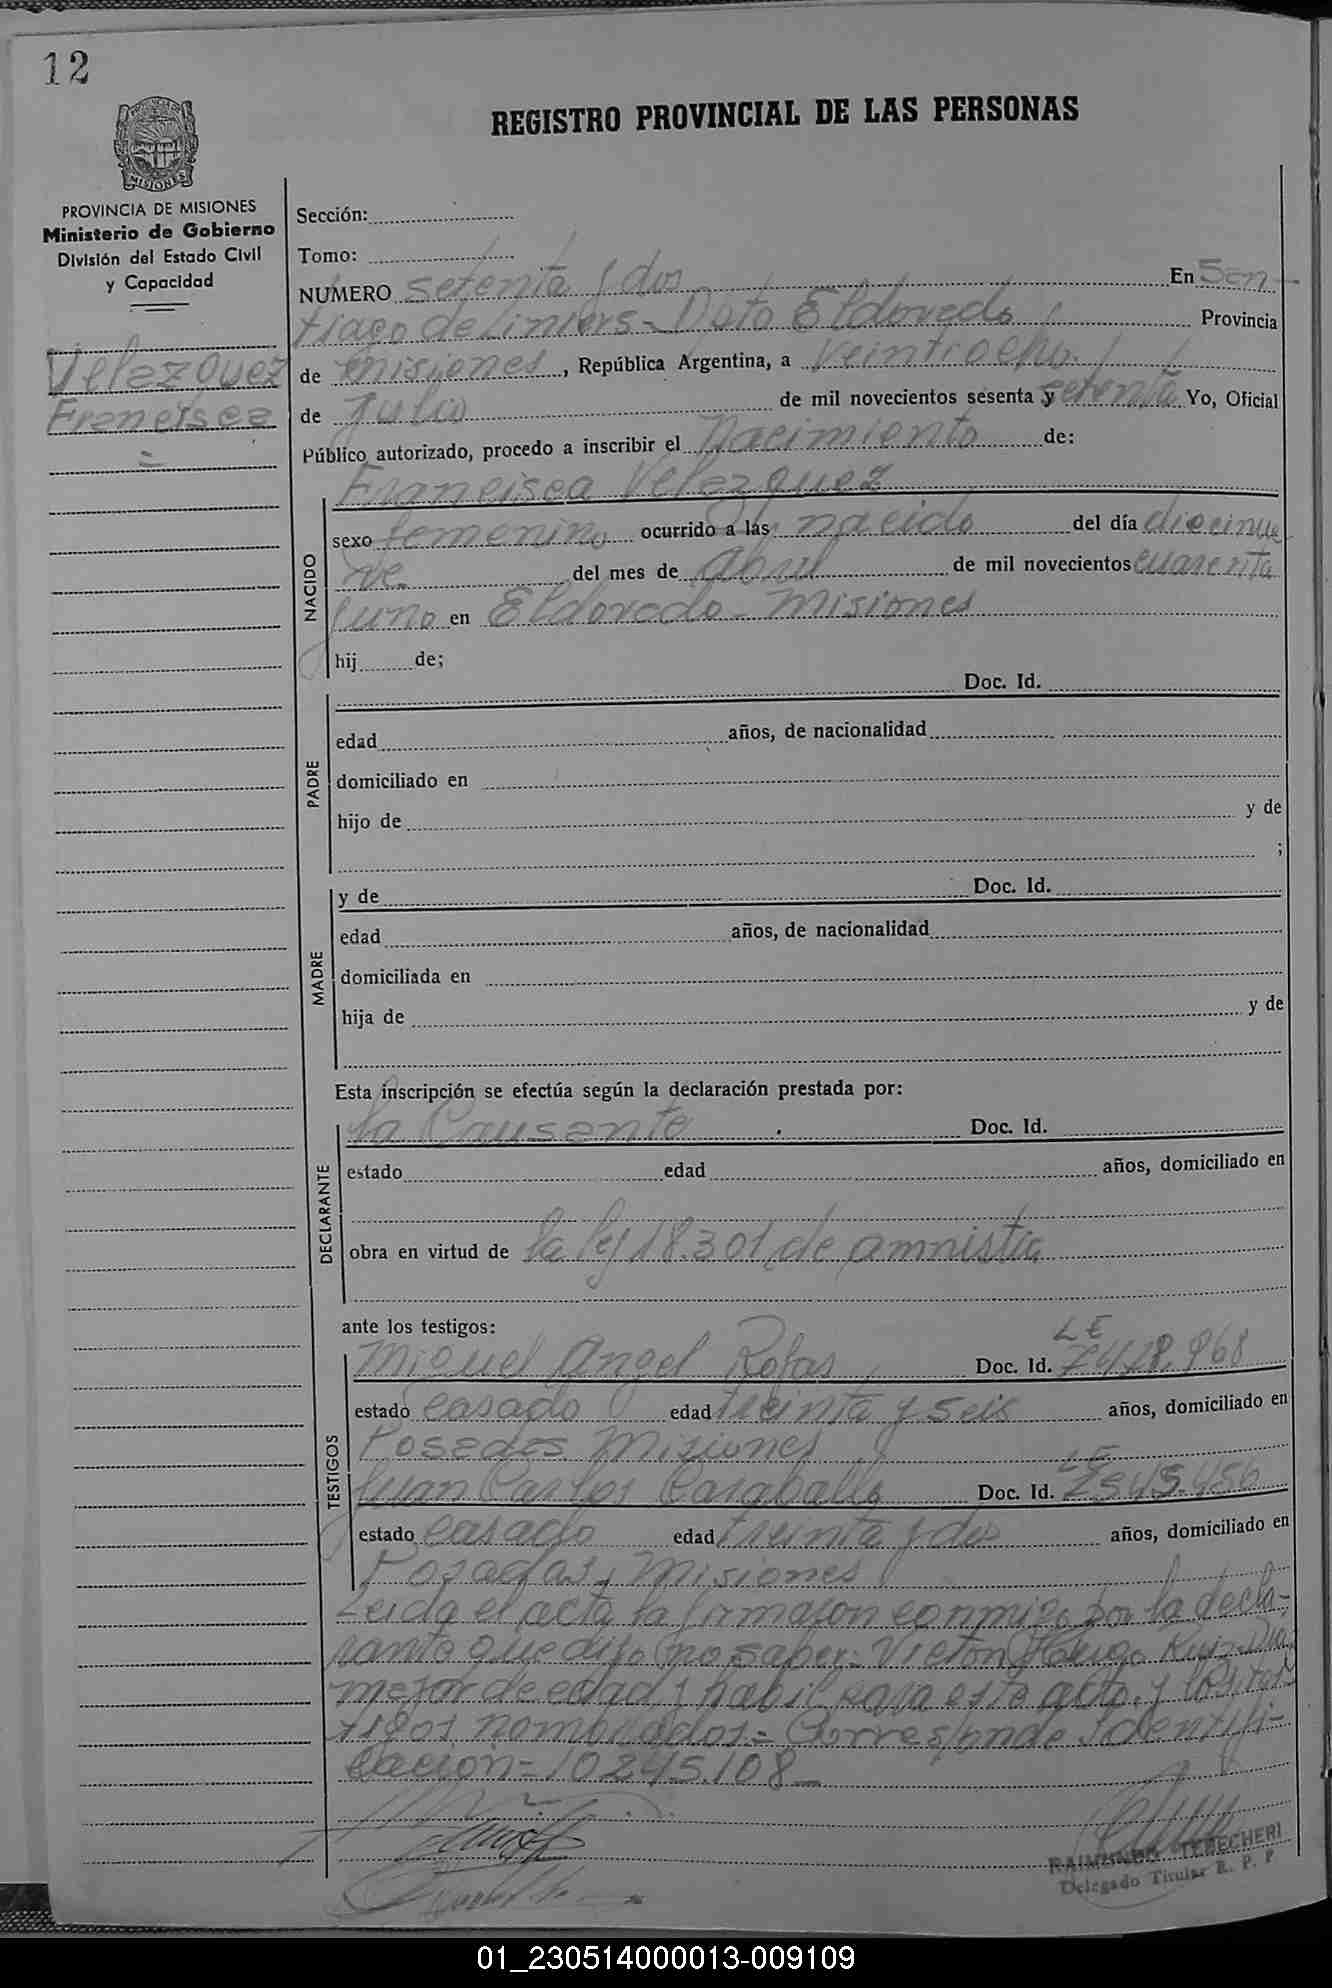 12
REGISTRO PROVINCIAL DE LAS PERSONAS
MISIONES
PROVINCIA DE MISIONES
Ministerio de Gobierno
División del Estado Civil
y Capacidad
Velezquez
Francisca
=
Sección:
Tomo:
NUMERO setenta y dos En San-
tiago de Liniers - Dpto Eldorado Provincia
de misiones, República Argentina, a veintiocho
de Julio de mil novecientos sesenta y setenta Yo, Oficial
Público autorizado, procedo a inscribir el Nacimiento de:
NACIDO
Francisca Velezquez
sexo femenino ocurrido a las nacido del día diecinue
ve. del mes de Abril de mil novecientos cuarenta
y uno en Eldorado - Misiones
hij de;
PADRE
Doc. Id.
edad años, de nacionalidad
domiciliado en
hijo de y de
;
MADRE
y de Doc. Id.
edad años, de nacionalidad
domiciliada en
hija de y de
Esta inscripción se efectúa según la declaración prestada por:
DECLARANTE
la Causante Doc. Id.
estado edad años, domiciliado en
obra en virtud de la ley 18.301, de amnistia
ante los testigos:
TESTIGOS
Miguel Angel Rojas Doc. Id. LE 7418.968
estado casado edad treinta y seis años, domiciliado en
Posadas Misiones
Juan Carlos Caraballo Doc. Id. LE 7545.456
estado casado edad treinta y dos años, domiciliado en
Posadas, Misiones
Leida el acta la firmaron conmigo por la decla-
rante que dijo no saber: Victor Hugo Ruiz
mejor de edad y habil para este acto, y los tes
tigos nombrados = Corresponde Identifi-
cación = 10245.108
RAIMUNDO TEBECHERI
Delegado Titular R. P. P.
01_230514000013-009109